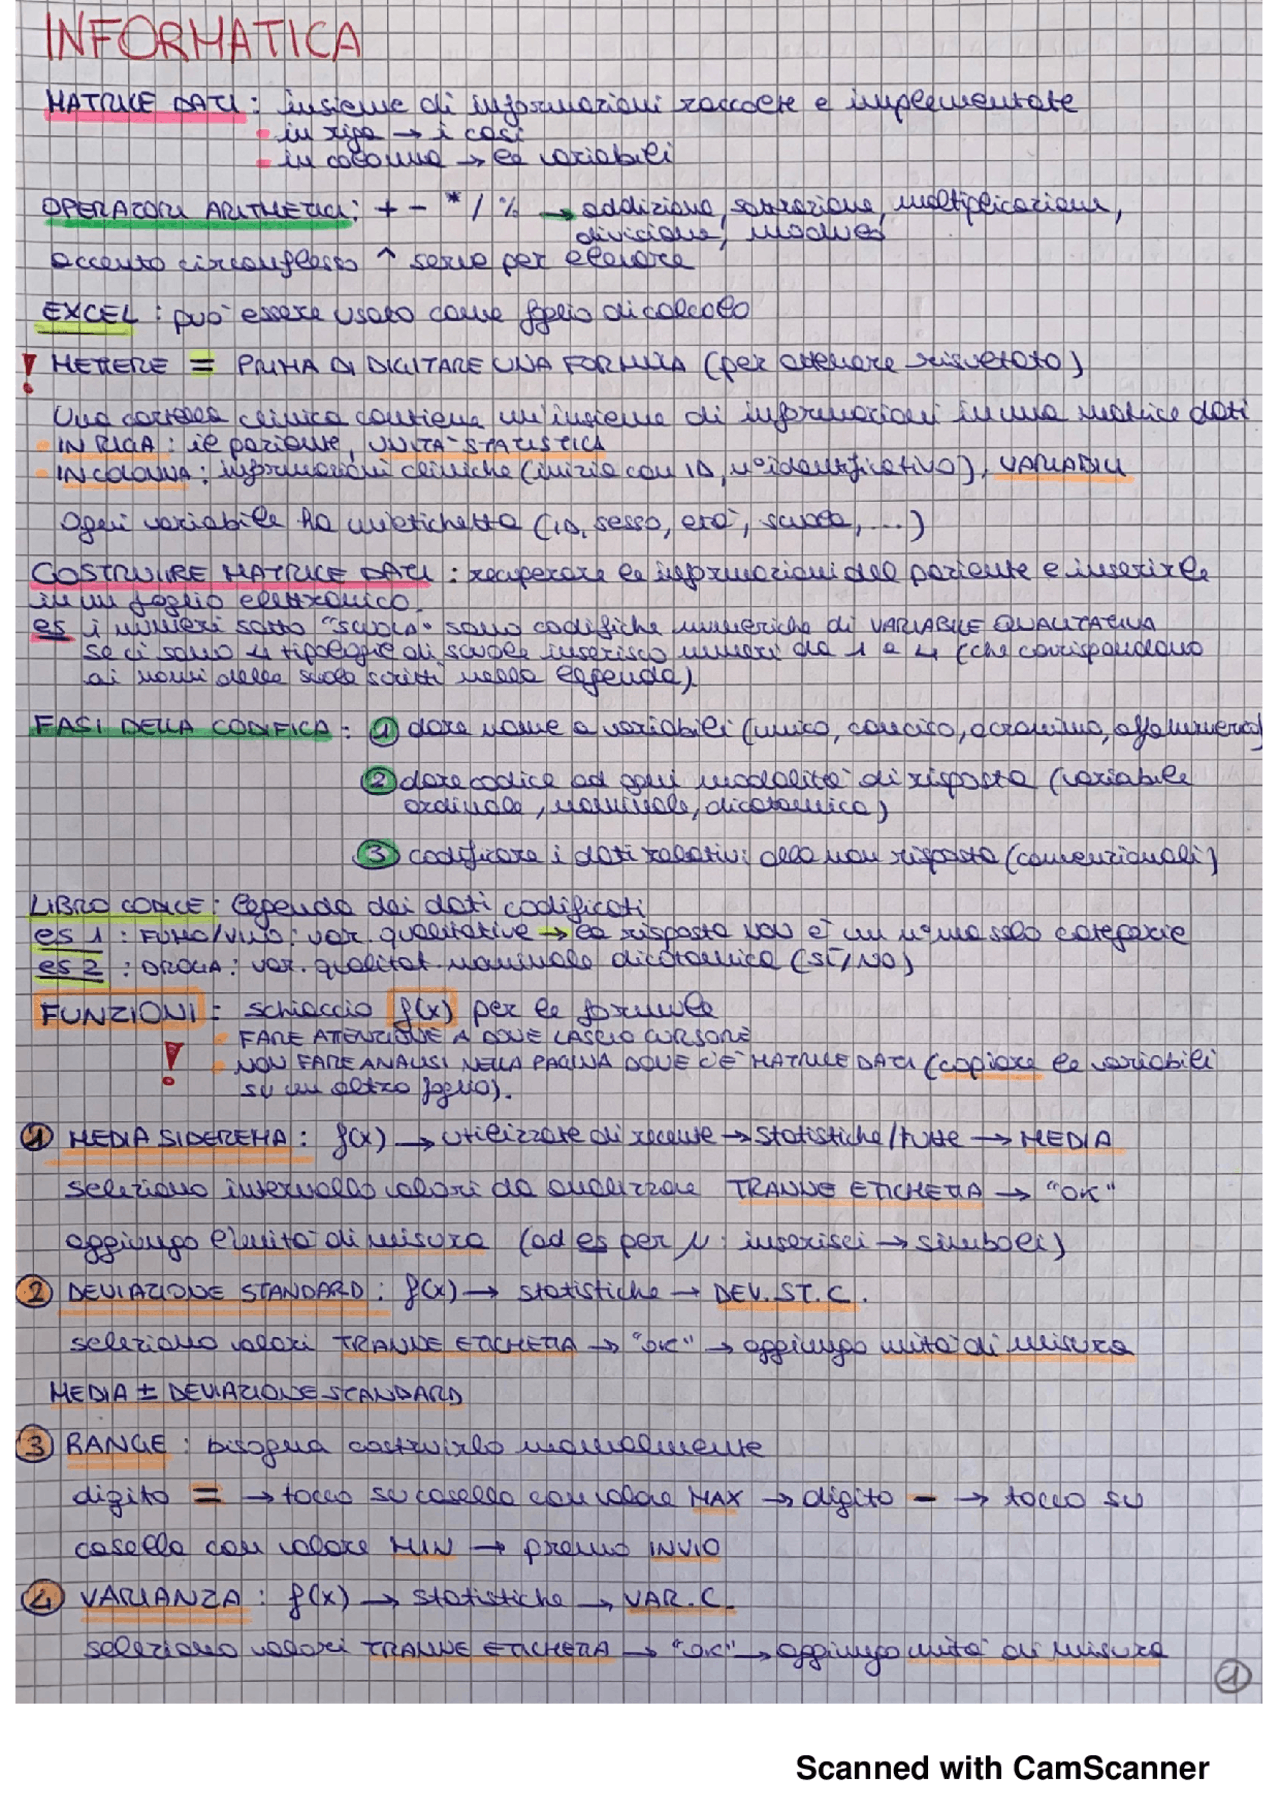 INFORMATICA
MATRICE DATI : insieme di informazioni raccolte e implementate
- in riga → i casi
- in colonna → le variabili
OPERATORI ARITMETICI: + - * / % → addizione, sottrazione, moltiplicazione,
divisione, modulo
accento circonflesso ^ serve per elevare
EXCEL : può essere usato come foglio di calcolo
! METTERE = PRIMA DI DIGITARE UNA FORMULA (per ottenere risultato)
Una cartella clinica contiene un'insieme di informazioni in una matrice dati
- IN RIGA : il paziente, UNITA' STATISTICA
- IN COLONNA : informazioni cliniche (inizia con ID, n° identificativo), VARIABILI
Ogni variabile ha un'etichetta (ID, sesso, età, scuola, ...)
COSTRUIRE MATRICE DATI : recuperare le informazioni del paziente e inserirle
in un foglio elettronico.
es i numeri sotto "SCUOLA" sono codifiche numeriche di VARIABILE QUALITATIVA
se ci sono 4 tipologie di scuole inserisco numeri da 1 a 4 (che corrispondono
ai nomi delle scuole scritti nella legenda)
FASI DELLA CODIFICA : 1 dare nome a variabili (unico, conciso, acronimo, alfanumerico)
2 dare codice ad ogni modalità di risposta (variabile
ordinale, nominale, dicotomica)
3 codificare i dati relativi alla non risposta (convenzionali)
LIBRO CODICE : legenda dei dati codificati
es 1 : FUMO/VINO : var. qualitative → la risposta NON È un n° ma solo categorie
es 2 : DROGA : var. qualitat. nominale dicotomica (SÌ/NO)
FUNZIONI : schiaccio f(x) per le formule
- FARE ATTENZIONE A DOVE LASCIO CURSORE
! - NON FARE ANALISI NELLA PAGINA DOVE C'È MATRICE DATI (copiare le variabili
su un altro foglio).
1 MEDIA SIDEREMIA : f(x) → utilizzate di recente → statistiche/tutte → MEDIA
seleziono intervallo valori da analizzare TRANNE ETICHETTA → "OK"
aggiungo l'unità di misura (ad es per μ : inserisci → simboli)
2 DEVIAZIONE STANDARD : f(x) → statistiche → DEV.ST.C.
seleziono valori TRANNE ETICHETTA → "OK" → aggiungo unità di misura
MEDIA ± DEVIAZIONE STANDARD
3 RANGE : bisogna costruirlo manualmente
digito = → tocco su casella con valore MAX → digito - → tocco su
casella con valore MIN → premo INVIO
4 VARIANZA : f(x) → statistiche → VAR.C.
seleziono valori TRANNE ETICHETTA → "OK" → aggiungo unità di misura
1
Scanned with CamScanner